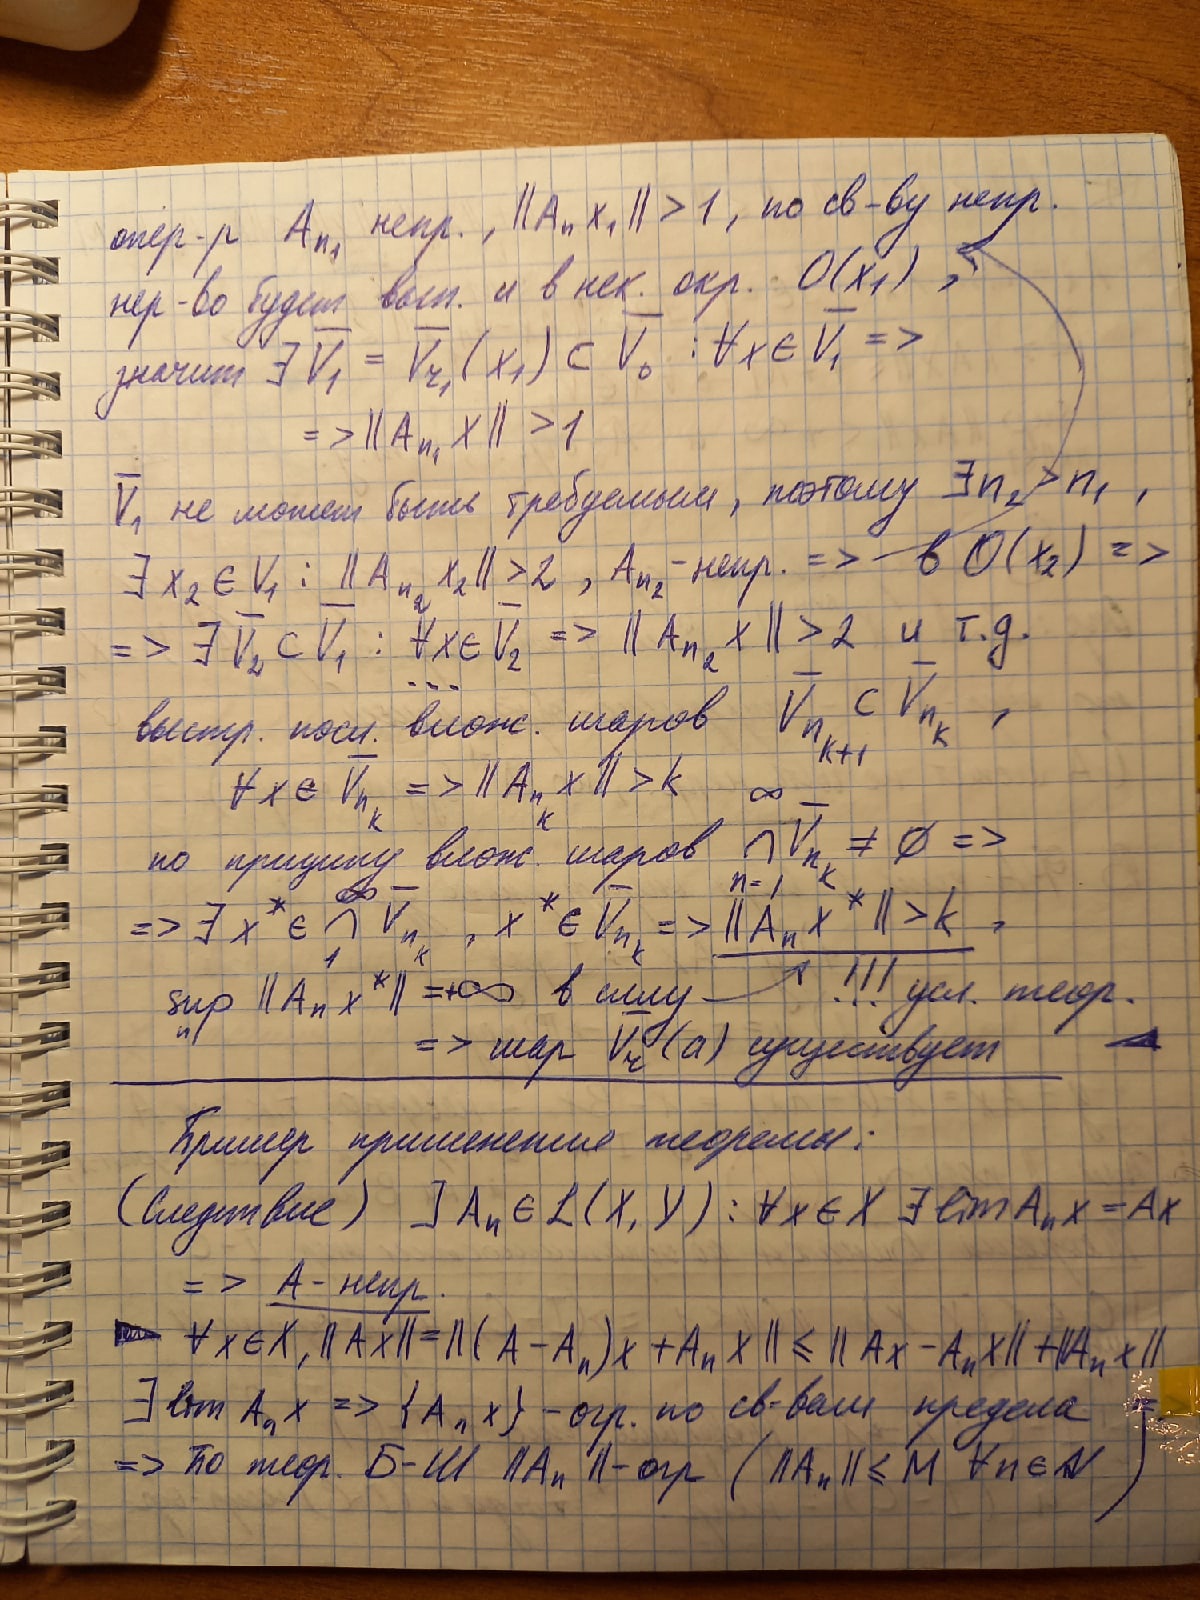 опер-р A_{n_1} непр., ‖A_n x_1‖ > 1, по св-ву непр.
нер-во будет вып. и в нек. окр. O(x_1),
значит ∃ V̅_1 = V̅_{r_1}(x_1) ⊂ V̅_0 : ∀x ∈ V̅_1 =>
=> ‖A_{n_1} x‖ > 1
V̅_1 не может быть требуемым, поэтому ∃ n_2 > n_1,
∃ x_2 ∈ V_1 : ‖A_{n_2} x_2‖ > 2, A_{n_2} - непр. => в O(x_2) =>
=> ∃ V̅_2 ⊂ V̅_1 : ∀x ∈ V̅_2 => ‖A_{n_2} x‖ > 2 и т.д.
...
выстр. посл. влож. шаров V̅_{n_{k+1}} ⊂ V̅_{n_k},
∀x ∈ V̅_{n_k} => ‖A_{n_k} x‖ > k
по прицыпу влож. шаров ∩_{n=1}^∞ V̅_{n_k} ≠ ∅ =>
=> ∃ x* ∈ ∩_1^∞ V̅_{n_k}, x* ∈ V̅_{n_k} => ‖A_n x*‖ > k,
sup_n ‖A_n x*‖ = +∞ в силу !!! усл. теор.
=> шар V̅_r(a) существует ◄
Пример применения теоремы:
(Следствие) ] A_n ∈ L(X, Y) : ∀x ∈ X ∃ lim A_n x = Ax
=> A - непр.
► ∀x ∈ X, ‖Ax‖ = ‖(A - A_n)x + A_n x‖ ≤ ‖Ax - A_n x‖ + ‖A_n x‖
∃ lim A_n x => {A_n x} - огр. по св-вам предела
=> По теор. Б-Ш ‖A_n‖ - огр (‖A_n‖ ≤ M ∀n ∈ N)